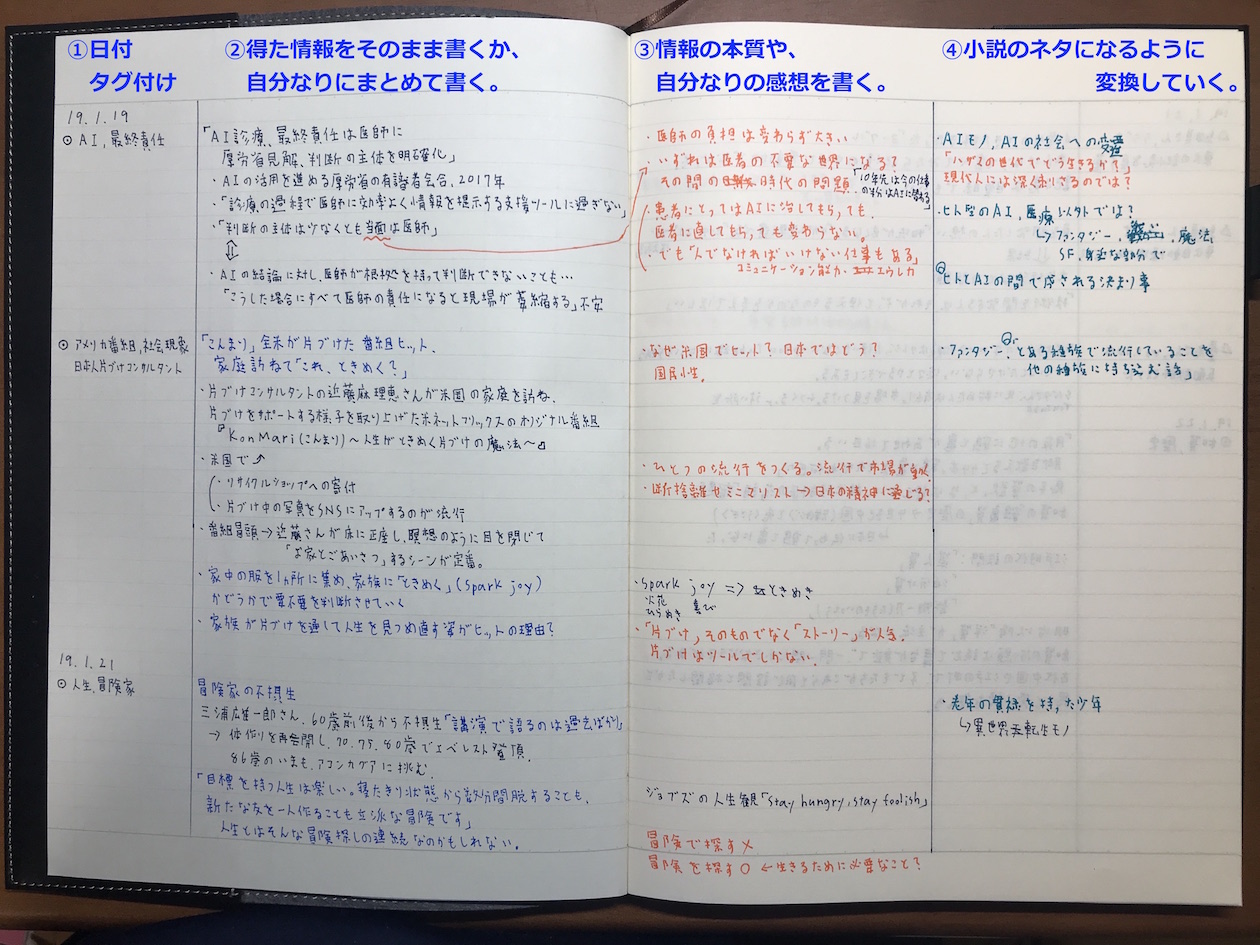 ①日付
タグ付け
②得た情報をそのまま書くか、
自分なりにまとめて書く。
③情報の本質や、
自分なりの感想を書く。
④小説のネタになるように
変換していく。
19.1.19
⊙ AI, 最終責任
「AI診療、最終責任は医師に
厚労省見解、判断の主体を明確化」
・AIの活用を進める厚労省の有識者会合、2017年
・「診療の過程で医師に効率よく情報を提示する支援ツールに過ぎない」
・「判断の主体は少なくとも当面は医師」
・AIの結論に対し、医師が根拠を持って判断できないことも…
「こうした場合にすべて医師の責任になると現場が萎縮する」不安
・医師の負担は変わらず大きい
・いずれは医者の不要な世界になる?
その間の時代の問題
「10年先は今の仕事
の半分はAIに替わる」
・患者にとってはAIに治してもらっても、
医者に直してもらっても変わらない。
・でも「人でなければいけない仕事もある」
コミュニケーション能力、エウレカ
・AIモノ、AIの社会への受
「ハザマの世代でどう生きるか?」
現代人には深く刺さるのでは?
・ヒト型のAI、医療以外では?
↳ファンタジー、魔法
SF、身近な部分で
ヒトとAIの間で成される決まり事
⊙ アメリカ番組、社会現象
日本人片づけコンサルタント
「こんまり」全米が片づけた 番組ヒット、
家庭訪ねて「これ、ときめく?」
・片づけコンサルタントの近藤麻理恵さんが米国の家庭を訪ね、
片づけをサポートする様子を取り上げたネットフリックスのオリジナル番組
『KonMari(こんまり)〜人生がときめく片づけの魔法〜』
・米国で
・リサイクルショップへの寄付
・片づけ中の写真をSNSにアップするのが流行
・番組冒頭→近藤さんが床に正座し、瞑想のように目を閉じて
「お家とごあいさつ」するシーンが定番。
・家中の服を1ヵ所に集め、家族に「ときめく」(spark joy)
かどうかで要不要を判断させていく
・家族が片づけを通して人生を見つめ直す姿がヒットの理由?
・なぜ米国でヒット? 日本ではどう?
国民性。
・ひとつの流行をつくる。流行で市場が動く
・断捨離やミニマリスト→日本の精神に通じる?
・spark joy => ときめき
火花 喜び
ひらめき
・「片づけ」そのものでなく「ストーリー」が人気。
片づけはツールでしかない。
・ファンタジー、とある種族で流行していることを
他の種族に持ち込む話」
19.1.21
⊙ 人生、冒険家
冒険家の不摂生
三浦雄一郎さん、60歳前後から不摂生「講演で語るのは過去ばかり」
→ 体作りを再開し、70、75、80歳でエベレスト登頂。
86歳のいまも、アコンカグアに挑む。
「目標を持つ人生は楽しい。寝たきり状態から数分間脱することも、
新たな友を一人作ることも立派な冒険です」
人生とはそんな冒険探しの連続なのかもしれない。
ジョブズの人生観「stay hungry, stay foolish」
冒険で探す ×
冒険を探す ○ ←生きるために必要なこと?
・老年の貫禄を持った少年
↳異世界転生モノ